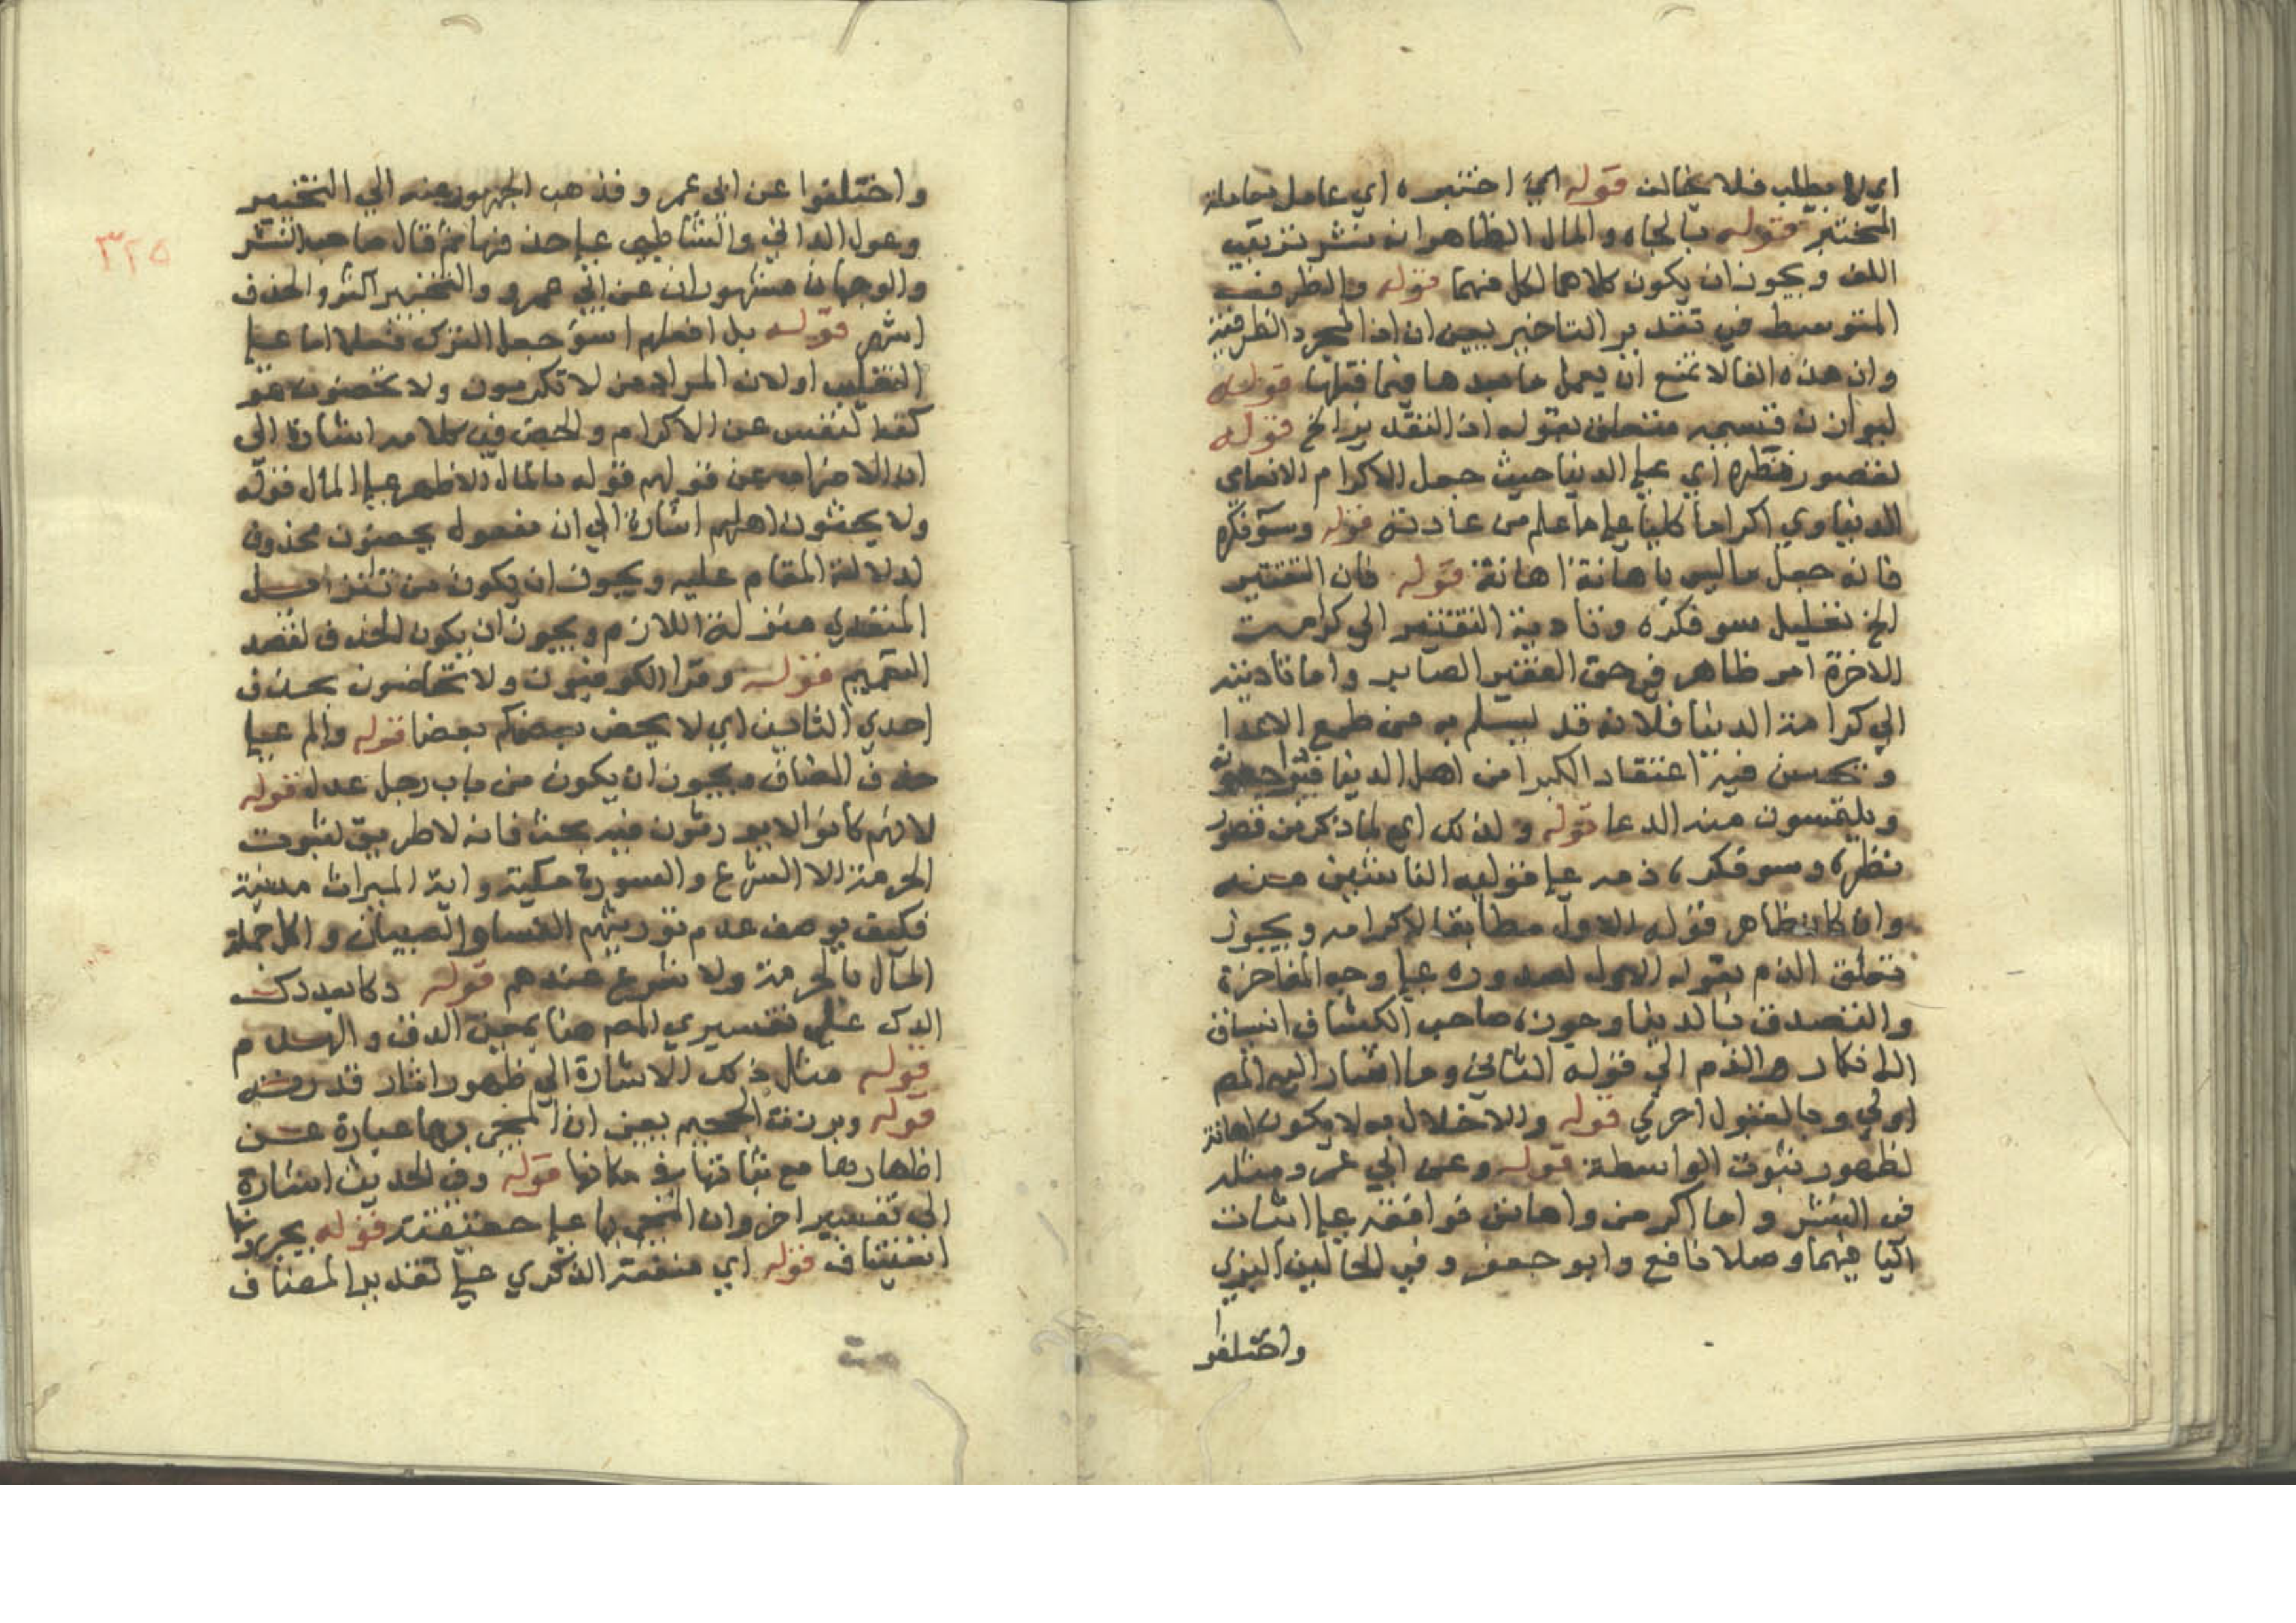 اي لا يطلب فلا يخالف قوله اي اختبره اي عامل معاملة
المختبر قوله بالجاه والمال الظاهر انه نشر بترتيب
اللف ويجوز ان يكون كلاهما لكل منهما قوله والظرف
المتوسط في تقدير التاخير يعني ان اذا لمجرد الظرفية
وان هذه الفا لا تمنع ان يعمل ما بعدها فيما قبلها قوله
ليوازن قسيمه متعلق بقوله اذ التقدير الخ قوله
لقصور نظره اي على الدنيا حيث جعل الاكرام الانعامي
الدنياوي اكراما كليا على ما علم من عادته قوله وسو فكره
فانه جعل ما ليس باهانة اهانة قوله فان التقتير
الخ تعليل سو فكره وتادية التقتير الى كرامت
الاخرة امر ظاهر في حق الفقير الصابر واما تاديته
الي كرامة الدنيا فلانه قد يسلم به من طمع الاعدا
وتحسن فيه اعتقاد الكبرا من اهل الدنيا فيراجعونه
ويلتمسون منه الدعا قوله ولذلك اي لما ذكر من قصور
نظره وسو فكره ذمه على قوليه الناشئين منه
وان كان ظاهر قوله الاول مطابقا لاكرامه ويجوز
تعلق الذم بقوله الاول لصدوره على وجه المفاخرة
والتصدق بالدنيا وجوز صاحب الكشاف انسياق
الانكار والذم الي قوله الثاني وما اشار اليه المص
اولي وبالقبول احري قوله والاخلال به لا يكون اهانة
لظهور ثبوت الواسطة قوله وعن ابي عمرو مثله
في النشر واما اكرمن واهانن فوافقه على اثبات
اليا فيهما وصلا نافع وابو جعفر وفي الحالين البزي
واختلفوا
واختلفوا عن ابي عمرو فذهب الجمهور عنه الي التخيير
وعول الداني والشاطبي على حذفهما قال صاحب النشر
والوجهان مشهوران عن ابي عمرو والتخيير اكثر والحذف
اشهر قوله بل افعلهم اسو جعل الترك فعلا اما على
التغليب او لان المراد من لا تكرمون ولا تحضون هو
كف النفس عن الاكرام والحض في كلامه اشارة الى
ان الاضراب عن قولهم قوله بالمال الاظهر على المال قوله
ولا يحثون اهلهم اشارة الي ان مفعوله يحضون محذوف
لدلالة المقام عليه ويجوز ان يكون من تنزيل
المتعدي منزلة اللازم ويجوز ان يكون الحذف لقصد
التعميم قوله وقرا الكوفيون ولا تحاضون بحذف
احدي التائين اي لا يحض بعضكم بعضا قوله والم على
حذف المضاف ويجوز ان يكون من باب رجل عدل قوله
لانهم كانوا لا يورثون فيه بحث فانه لا طريق لثبوت
الحرمة الا الشرع والسورة مكية واية الميراث مدنية
فكيف يوصف عدم توريثهم النسا والصبيان واكل جملة
المال بالحرمة ولا شرع عندهم قوله دكا بعد دك
الدك على تفسيري المص هنا بمعني الدق والهدم
قوله مثال ذلك الاشارة الي ظهور اثار قدرته
قوله وبرزت الجحيم يعني ان المجي بها عبارة عن
اظهارها مع ثباتها في مكانها قوله وفي الحديث اشارة
الى تفسير اخر وان المجي بها على حقيقته قوله يجرونها
استيناف قوله اي منفعة الذكري على تقدير المضاف
٣٢٥